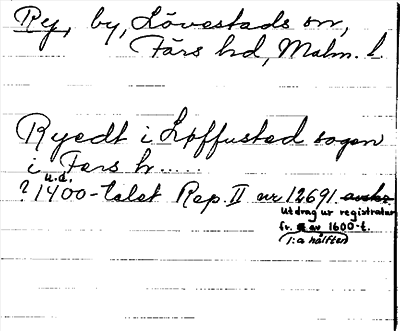 Ry, by, Lövestads sn,
Färs hd, Malm. l.
Ryedt i Löffustad sogen
i Fers hr.....
u.d.
? 1400-talet Rep. II nr 12691. avskr.
Utdrag ur registratur
fr. av 1600-t.
(1:a hälften)